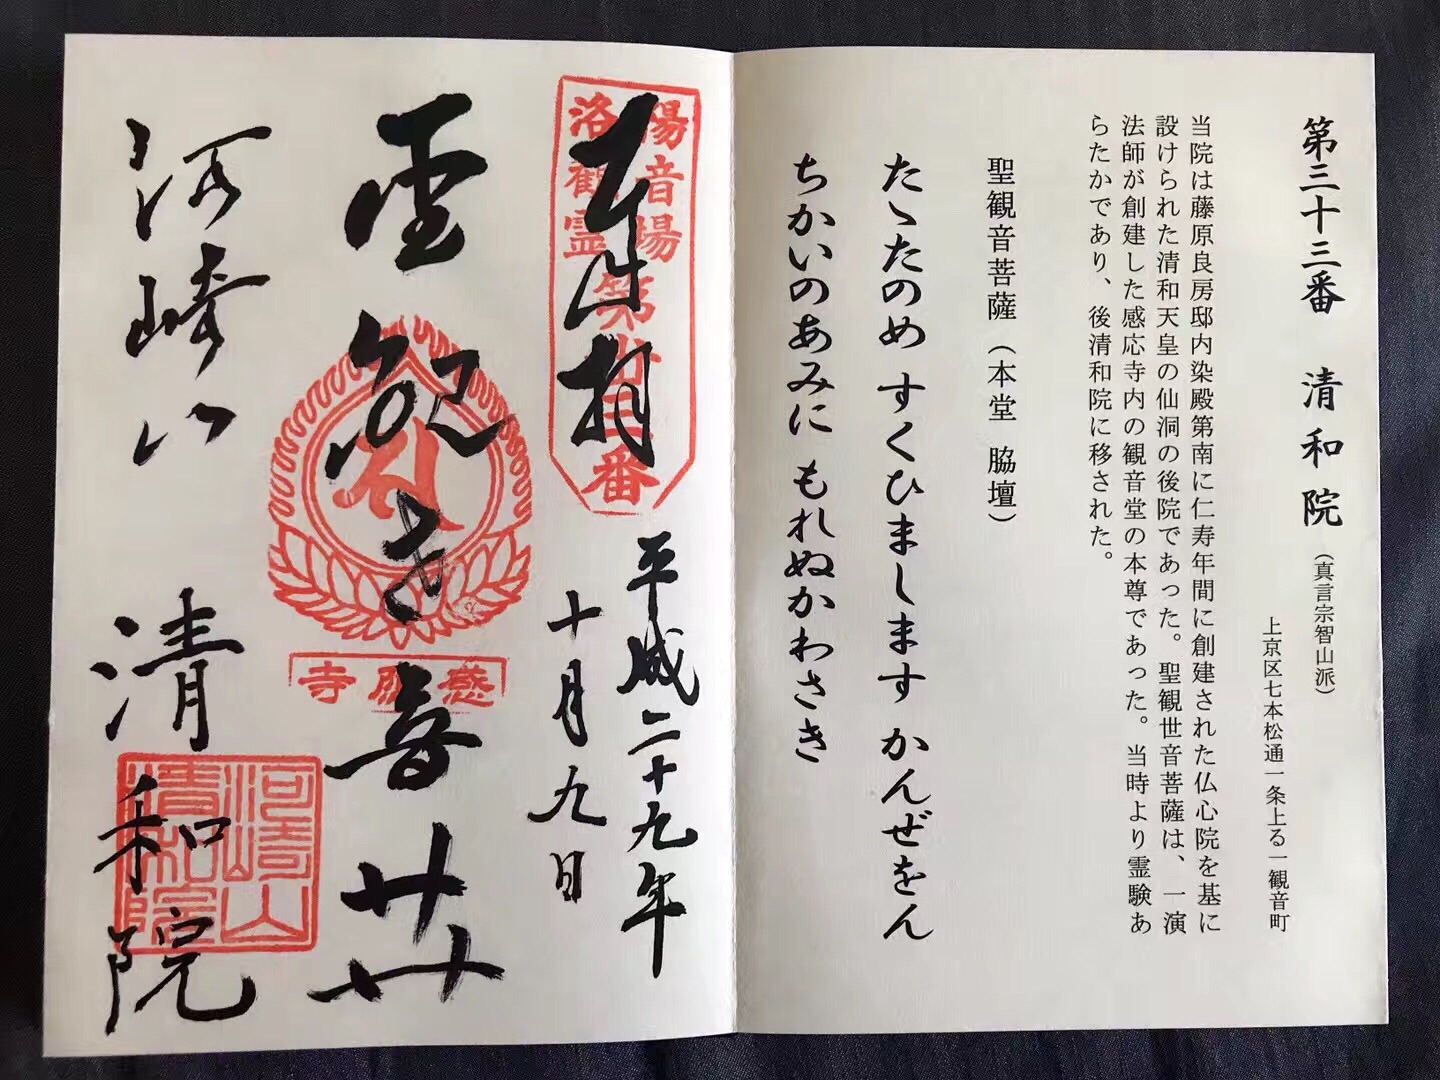 第三十三番 清和院（真言宗智山派）
上京区七本松通一条上る一観音町
当院は藤原良房邸内染殿第南に仁寿年間に創建された仏心院を基に
設けられた清和天皇の仙洞の後院であった。聖観世音菩薩は、一演
法師が創建した感応寺内の観音堂の本尊であった。当時より霊験あ
らたかであり、後清和院に移された。
聖観音菩薩（本堂 脇壇）
たゝたのめ すくひまします かんぜをん
ちかいのあみに もれぬかわさき
奉拝
洛陽
観音
霊場
第卅三番
平成二十九年
十月九日
聖観世音廾廾
感應寺
河崎山 清和院
河崎山
清和院